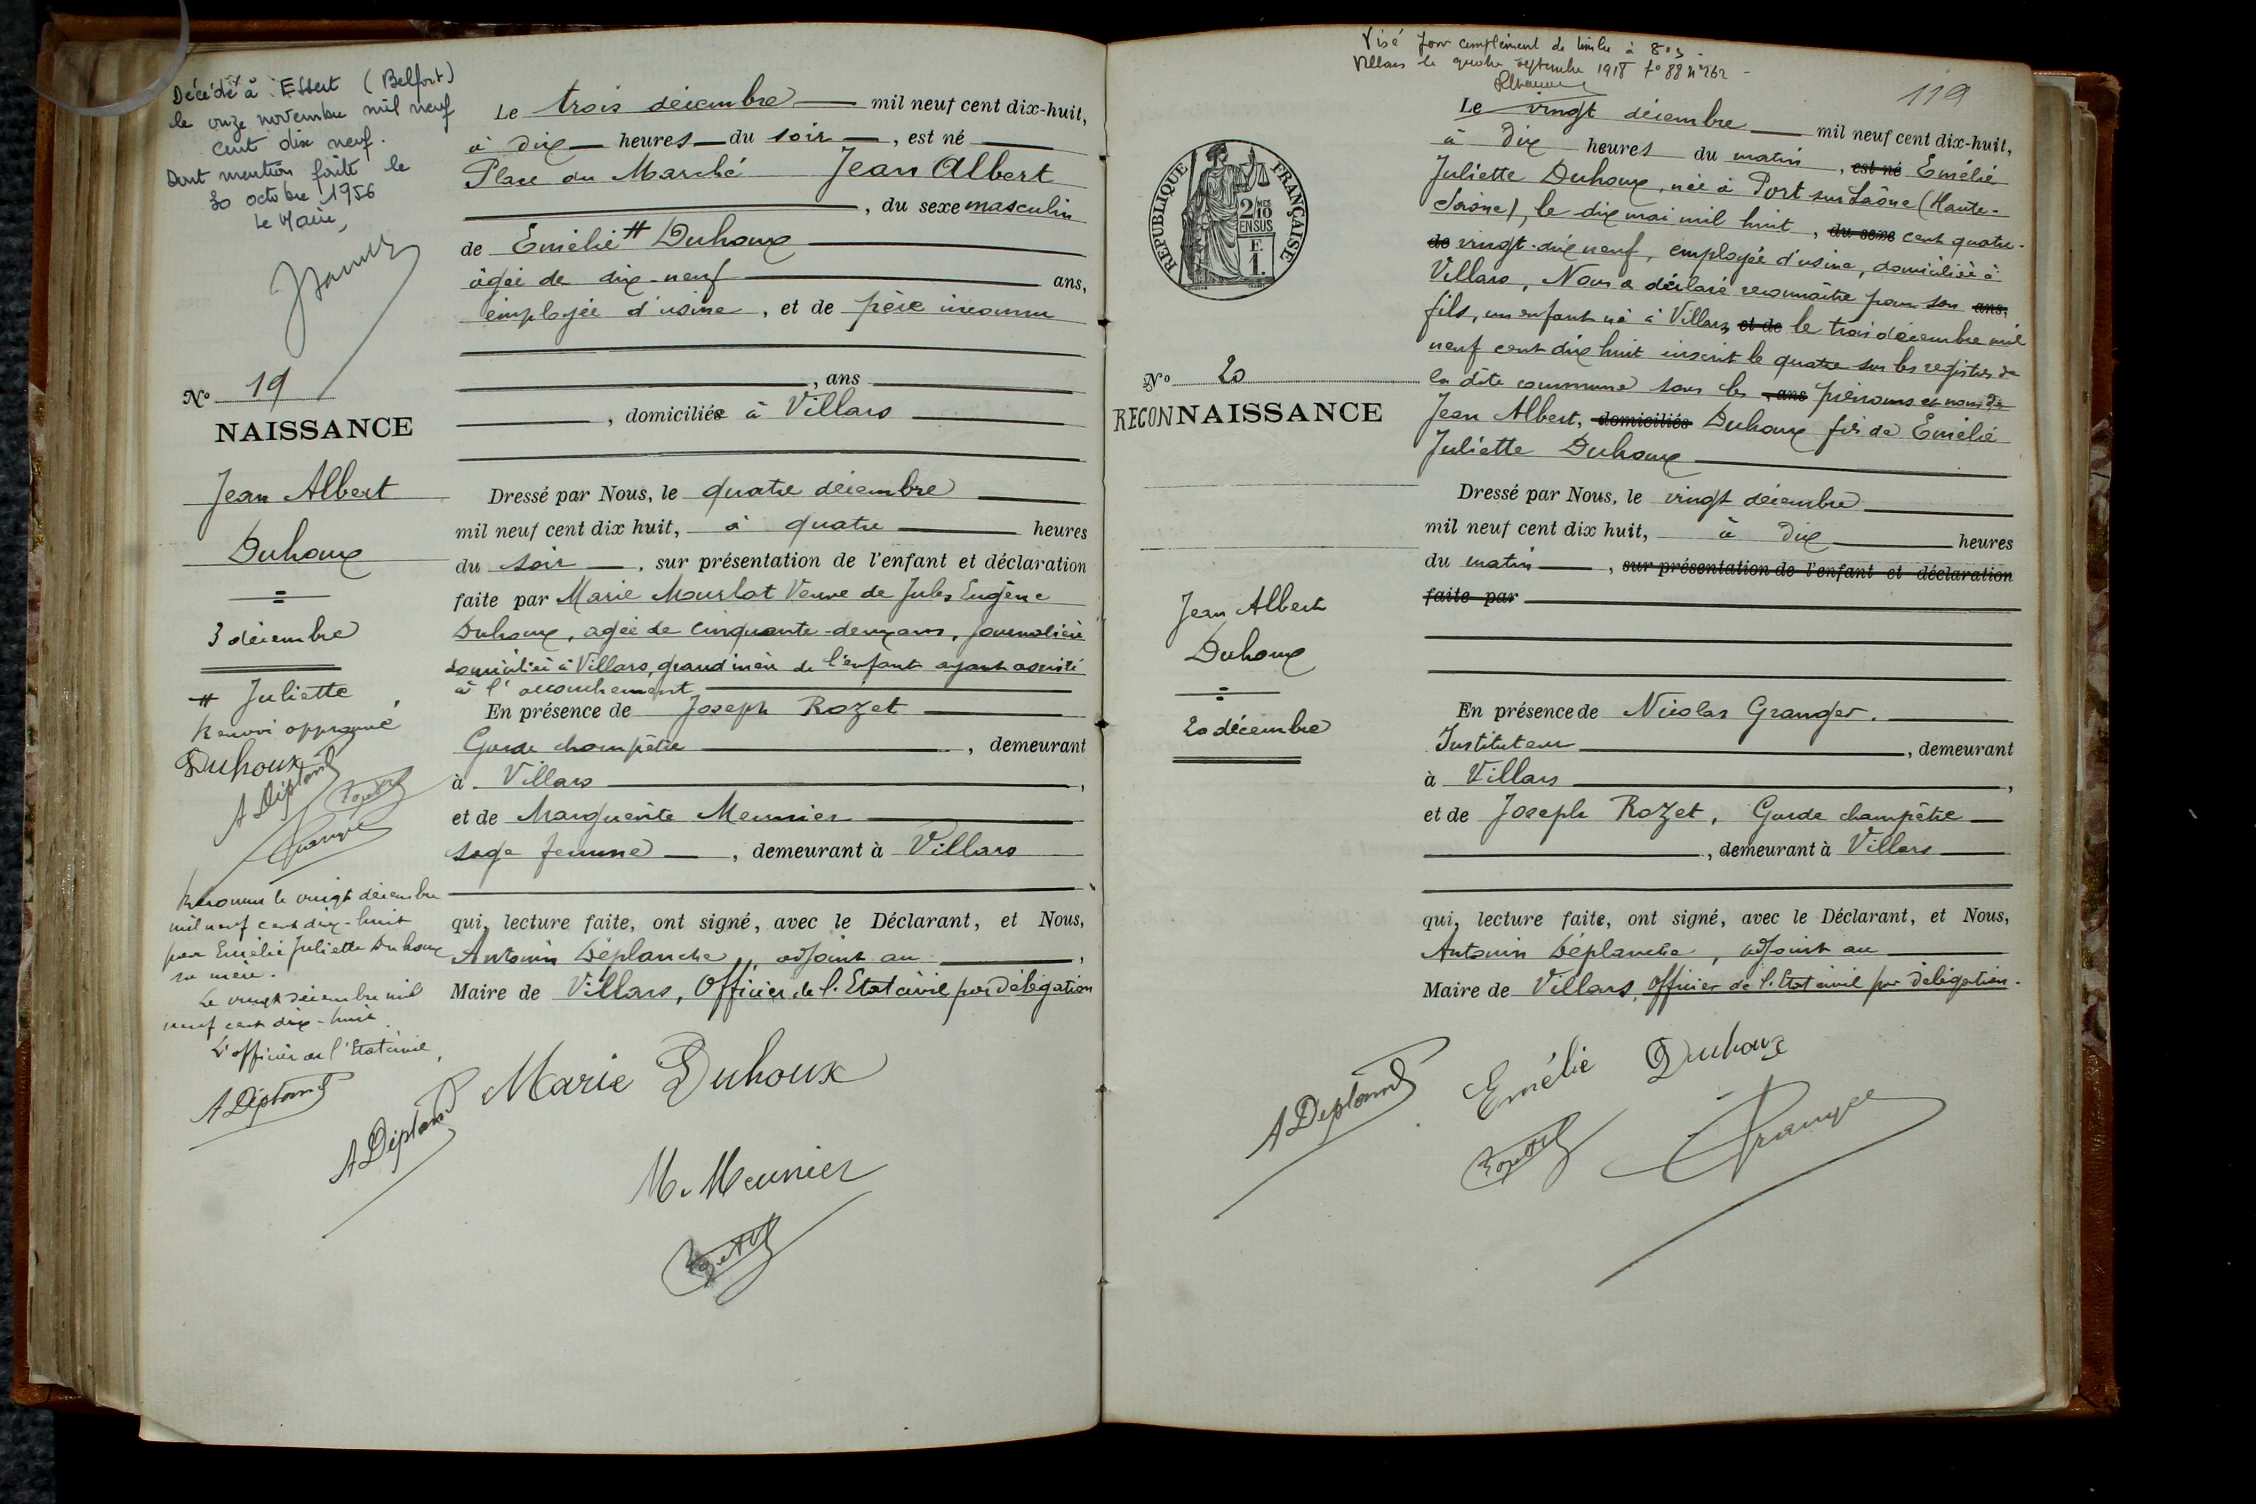 Décédé à Essert (Belfort)
le onze novembre mil neuf
cent dix neuf.
Dont mention faite le
30 octobre 1956
Le Maire,
N° 19
NAISSANCE
Jean Albert
Duhoux
3 décembre
# Juliette
Renvoi approuvé
Duhoux
Reconnu le vingt décembre
mil neuf cent dix-huit
par Emélie Juliette Duhoux
sa mère.
Le vingt décembre mil
neuf cent dix-huit
L'officier de l'Etat civil,
Le trois décembre mil neuf cent dix-huit,
à dix heures du soir, est né
Place du Marché Jean Albert
, du sexe masculin
de Emélie # Duhoux
âgée de dix-neuf ans,
employée d'usine, et de père inconnu
, ans
, domiciliée à Villars
Dressé par Nous, le quatre décembre
mil neuf cent dix huit, à quatre heures
du soir, sur présentation de l'enfant et déclaration
faite par Marie Mourlot Veuve de Jules Eugène
Duhoux, agée de cinquante-deux ans, journalière
domiciliée à Villars, grand'mère de l'enfant ayant assisté
à l'accouchement
En présence de Joseph Rozet
Garde champêtre, demeurant
à Villars,
et de Marguerite Meunier
sage femme, demeurant à Villars
qui, lecture faite, ont signé, avec le Déclarant, et Nous,
Antonin Déplanche, adjoint au,
Maire de Villars, Officier de l'Etat civil par délégation
Marie Duhoux
M. Meunier
Visé pour complément de timbre à
Villars le quatre septembre 1918 f° 88 n° 262
119
REPUBLIQUE FRANÇAISE
2/10 EN SUS
F.
1.
N° 20
RECONNAISSANCE
Jean Albert
Duhoux
20 décembre
Le vingt décembre mil neuf cent dix-huit,
à dix heures du matin, est né Emélie
Juliette Duhoux, née à Port sur Saône (Haute-
Saône), le dix mai mil huit, du sexe cent quatre-
de vingt-dix neuf, employée d'usine, domiciliée à
Villars, Nous a déclaré reconnaître pour son ans,
fils, un enfant né à Villars et de le trois décembre mil
neuf cent dix huit inscrit le quatre sur les registres de
la dite commune sous les , ans prénoms et nom de
Jean Albert, domiciliés Duhoux fils de Emélie
Juliette Duhoux
Dressé par Nous, le vingt décembre
mil neuf cent dix huit, à dix heures
du matin, sur présentation de l'enfant et déclaration
faite par
En présence de Nicolas Granger.
Instituteur, demeurant
à Villars,
et de Joseph Rozet, Garde champêtre
, demeurant à Villars
qui, lecture faite, ont signé, avec le Déclarant, et Nous,
Antonin Déplanche, adjoint au
Maire de Villars, officier de l'Etat civil par délégation.
Emélie Duhoux